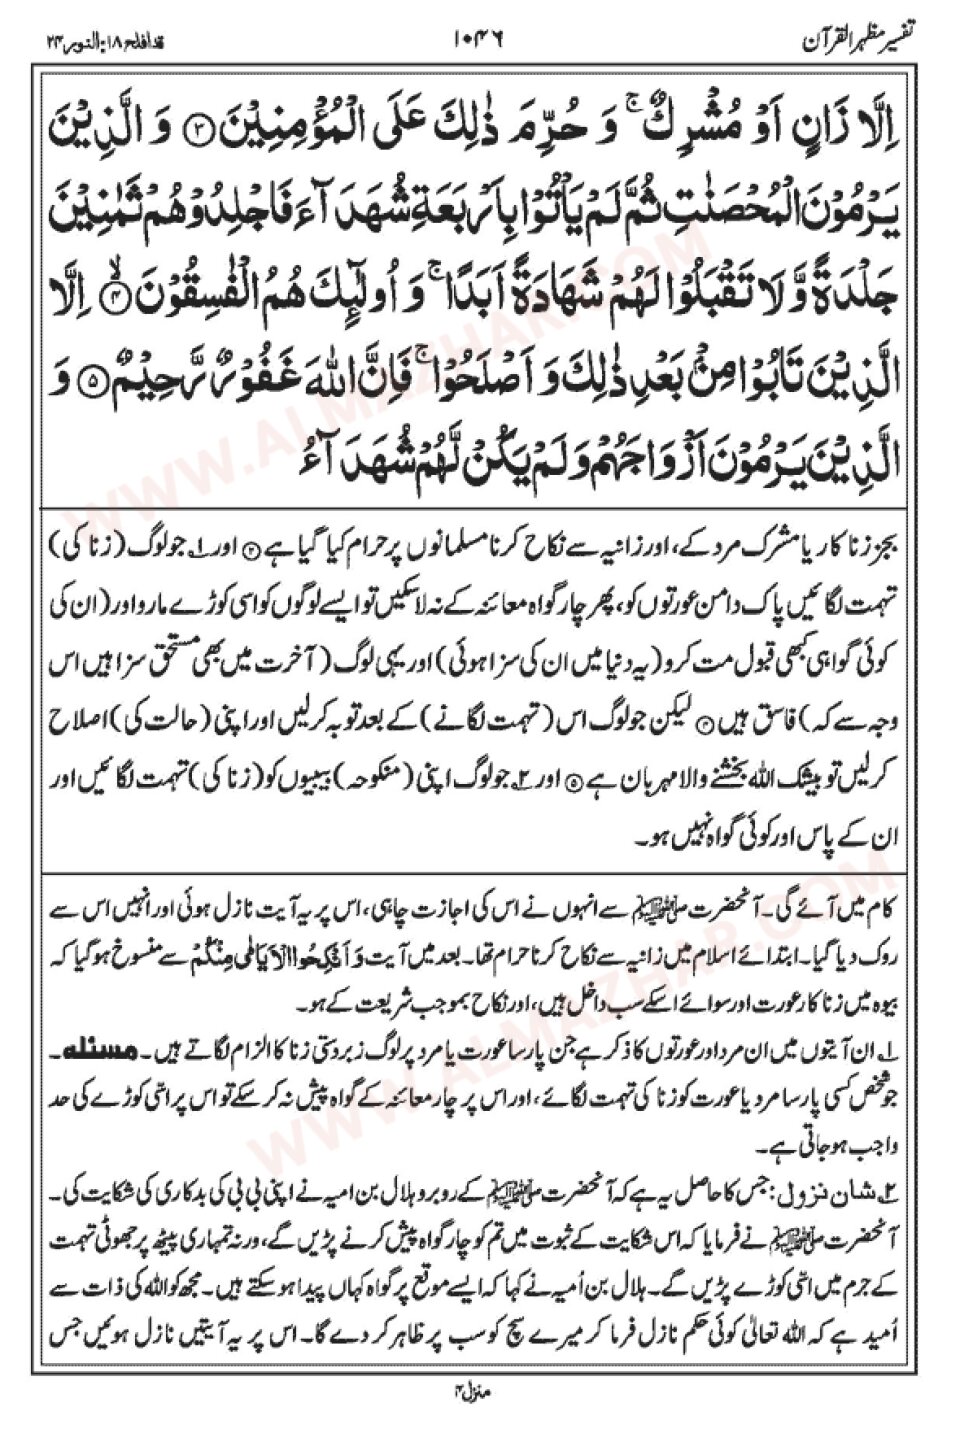 تفسیر مظہر القرآن
۱۰۴۶
قد افلح ۱۸: النور ۲۴
اِلَّا زَانٍ اَوْ مُشْرِكٌ ۚ وَ حُرِّمَ ذٰلِكَ عَلَى الْمُؤْمِنِيْنَ ۝۳ وَ الَّذِيْنَ
يَرْمُوْنَ الْمُحْصَنٰتِ ثُمَّ لَمْ يَاْتُوْا بِاَرْبَعَةِ شُهَدَآءَ فَاجْلِدُوْهُمْ ثَمٰنِيْنَ
جَلْدَةً وَّ لَا تَقْبَلُوْا لَهُمْ شَهَادَةً اَبَدًا ۚ وَ اُولٰٓئِكَ هُمُ الْفٰسِقُوْنَ ۝۴ۙ اِلَّا
الَّذِيْنَ تَابُوْا مِنْۢ بَعْدِ ذٰلِكَ وَ اَصْلَحُوْا ۚ فَاِنَّ اللّٰهَ غَفُوْرٌ رَّحِيْمٌ ۝۵ وَ
الَّذِيْنَ يَرْمُوْنَ اَزْوَاجَهُمْ وَ لَمْ يَكُنْ لَّهُمْ شُهَدَآءُ
بجز زنا کار یا مشرک مرد کے، اور زانیہ سے نکاح کرنا مسلمانوں پر حرام کیا گیا ہے ۝۳ اور ۱؎ جو لوگ (زنا کی)
تہمت لگائیں پاک دامن عورتوں کو، پھر چار گواہ معائنہ کے نہ لا سکیں تو ایسے لوگوں کو اسی کوڑے مارو اور (ان کی
کوئی گواہی کبھی قبول مت کرو (یہ دنیا میں ان کی سزا ہوئی) اور یہی لوگ (آخرت میں بھی مستحق سزا ہیں اس
وجہ سے کہ) فاسق ہیں ۝۴ لیکن جو لوگ اس (تہمت لگانے) کے بعد توبہ کر لیں اور اپنی (حالت کی) اصلاح
کر لیں تو بیشک اللہ بخشنے والا مہربان ہے ۝۵ اور ۲؎ جو لوگ اپنی (منکوحہ) بیبیوں کو (زنا کی) تہمت لگائیں اور
ان کے پاس اور کوئی گواہ نہیں ہو۔
کام میں آئے گی۔ آنحضرت ﷺ سے انہوں نے اس کی اجازت چاہی، اس پر یہ آیت نازل ہوئی اور انہیں اس سے
روک دیا گیا۔ ابتدائے اسلام میں زانیہ سے نکاح کرنا حرام تھا۔ بعد میں آیت وَ اَنْكِحُوا الْاَيَامٰى مِنْكُمْ سے منسوخ ہو گیا کہ
بیوہ میں زنا کار عورت اور سوائے اسکے سب داخل ہیں، اور نکاح بموجب شریعت کے ہو۔
۱؎ ان آیتوں میں ان مرد اور عورتوں کا ذکر ہے جن پارسا عورت یا مرد پر لوگ زبردستی زنا کا الزام لگاتے ہیں۔ مسئلہ۔
جو شخص کسی پارسا مرد یا عورت کو زنا کی تہمت لگائے، اور اس پر چار معائنہ کے گواہ پیش نہ کر سکے تو اس پر اسّی کوڑے کی حد
واجب ہو جاتی ہے۔
۲؎ شان نزول: جس کا حاصل یہ ہے کہ آنحضرت ﷺ کے روبرو ہلال بن امیہ نے اپنی بی بی کی بدکاری کی شکایت کی۔
آنحضرت ﷺ نے فرمایا کہ اس شکایت کے ثبوت میں تم کو چار گواہ پیش کرنے پڑیں گے، ورنہ تمہاری پیٹھ پر جھوٹی تہمت
کے جرم میں اسّی کوڑے پڑیں گے۔ ہلال بن اُمیہ نے کہا کہ ایسے موقع پر گواہ کہاں پیدا ہو سکتے ہیں۔ مجھ کو اللہ کی ذات سے
اُمید ہے کہ اللہ تعالیٰ کوئی حکم نازل فرما کر میرے سچ کو سب پر ظاہر کر دے گا۔ اس پر یہ آیتیں نازل ہوئیں جس
منزل ۴
WWW.ALMAZHAR.COM
WWW.ALMAZHAR.COM